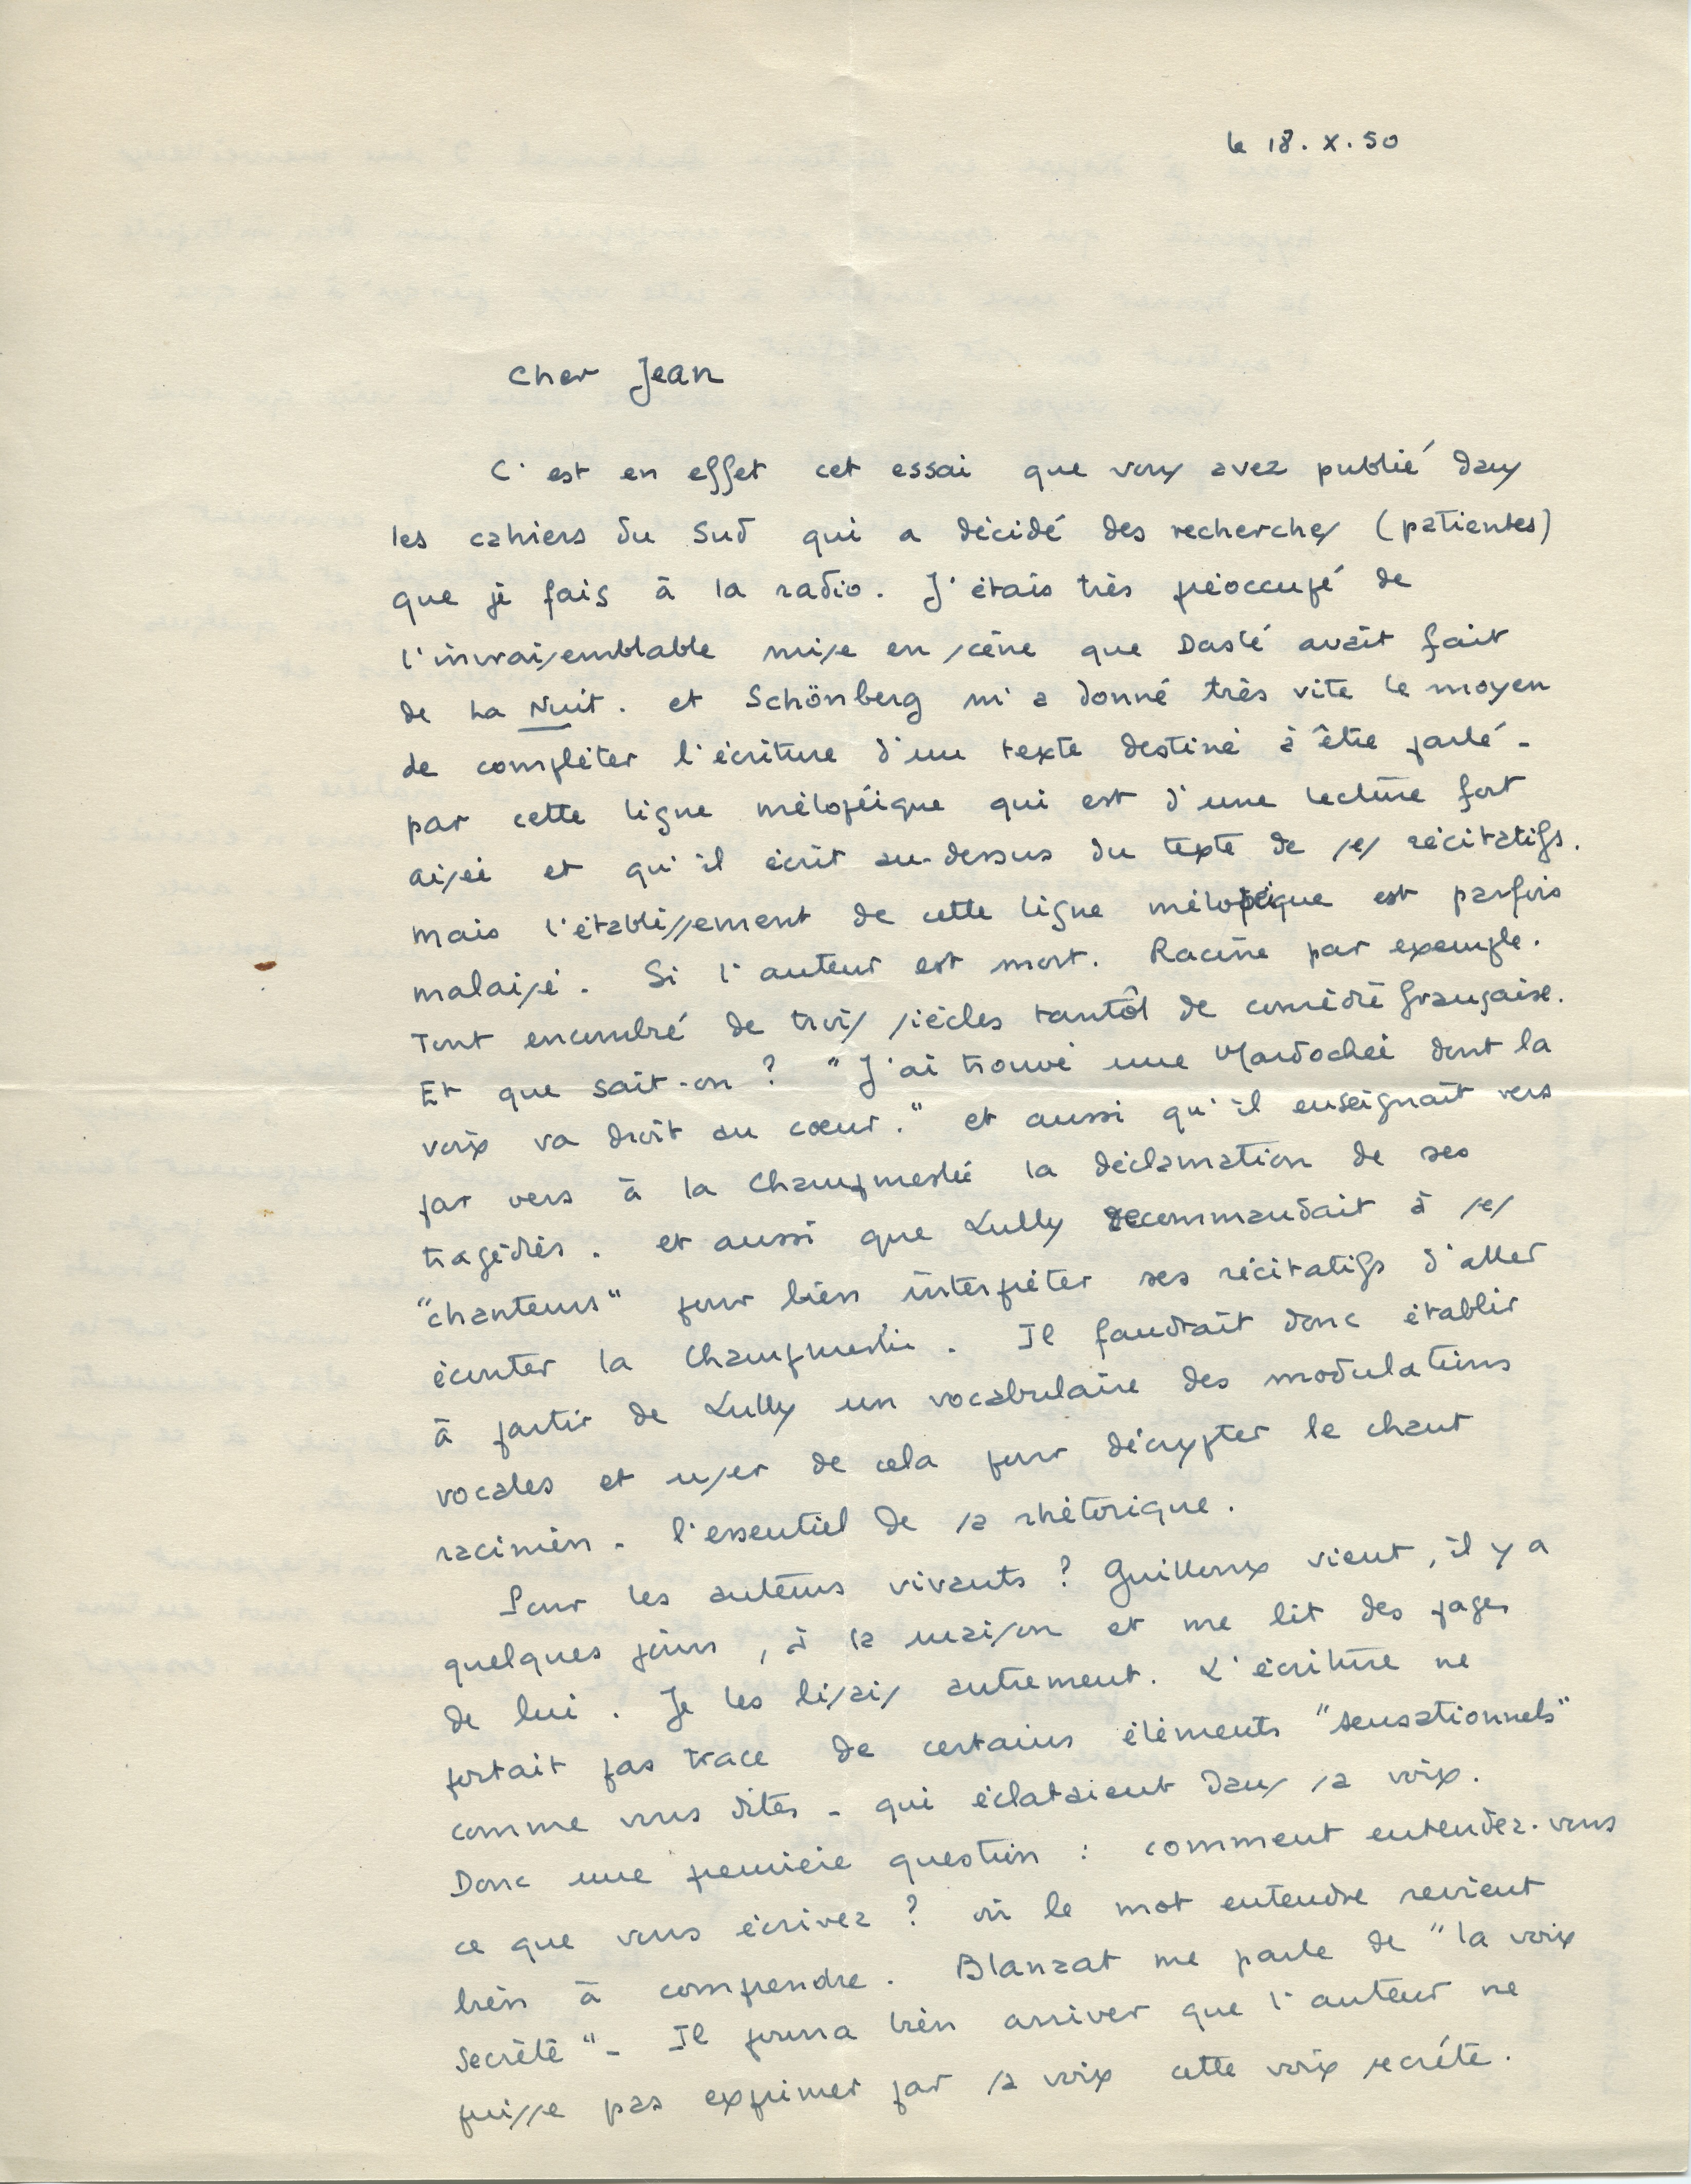 le 18. X. 50
Cher Jean
C'est en effet cet essai que vous avez publié dans
les cahiers du Sud qui a décidé des recherches (patientes)
que je fais à la radio. J'étais très préoccupé de
l'invraisemblable mise en scène que Dasté avait fait
de La Nuit. et Schönberg m'a donné très vite le moyen
de compléter l'écriture d'un texte destiné à être parlé -
par cette ligne mélopéique qui est d'une lecture fort
aisée et qu'il écrit au-dessus du texte de ses récitatifs.
mais l'établissement de cette ligne mélopéique est parfois
malaisé. Si l'auteur est mort. Racine par exemple.
Tout encombré de trois siècles tantôt de comédie française.
Et que sait-on ? "J'ai trouvé une Mardochée dont la
voix va droit au cœur." et aussi qu'il enseignait vers
par vers à la Champmeslé la déclamation de ses
tragédies. et aussi que Lully recommandait à ses
"chanteurs" pour bien interpréter ses récitatifs d'aller
écouter la Champmeslé. Il faudrait donc établir
à partir de Lully un vocabulaire des modulations
vocales et user de cela pour décrypter le chant
racinien - l'essentiel de sa rhétorique.
Pour les auteurs vivants ? Guilloux vient, il y a
quelques jours, à la maison et me lit des pages
de lui. Je les lisais autrement. L'écriture ne
portait pas trace de certains éléments "sensationnels"
comme vous dites - qui éclataient dans sa voix.
Donc une première question : comment entendez-vous
ce que vous écrivez ? où le mot entendre revient
bien à comprendre. Blanzat me parle de "la voix
secrète" - Il pourra bien arriver que l'auteur ne
puisse pas exprimer par sa voix cette voix secrète.